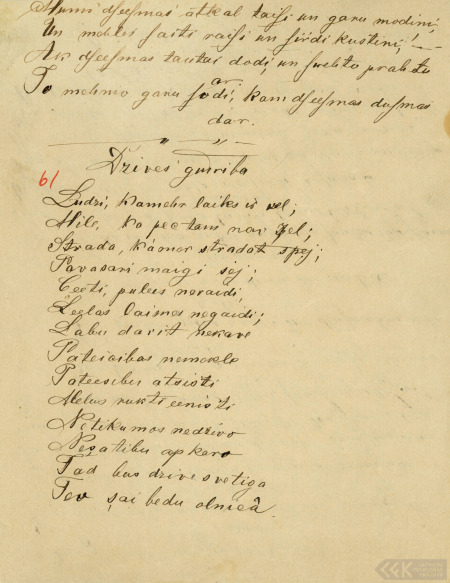 Mumi dseesmas atkal taisi un garu modini,
Un mehles saiti raisi un sirdi kustini,
Ak dseesmas tautai dodi, un swehto prahtu
To mehmo garu sodi, kam dseesmas dusmas
ar
dar.
Dzives gudriba
61
Ludzi, kamehr laiks ir vel;
Mile, ko pec tam nav žel;
Strada, kamer stradat spej;
Pavasari maigi sej;
Ceeti, pulus neraidi,
Leelas laimes negaidi;
Labu darit nekave
Pateicibas nemekle
Pateesibu atsisti
Melus nukti eenisti
Netikumos nedzivo
Negatibu apkaro
Tad bus dzive svetiga
Tev šai bedu olnicâ.